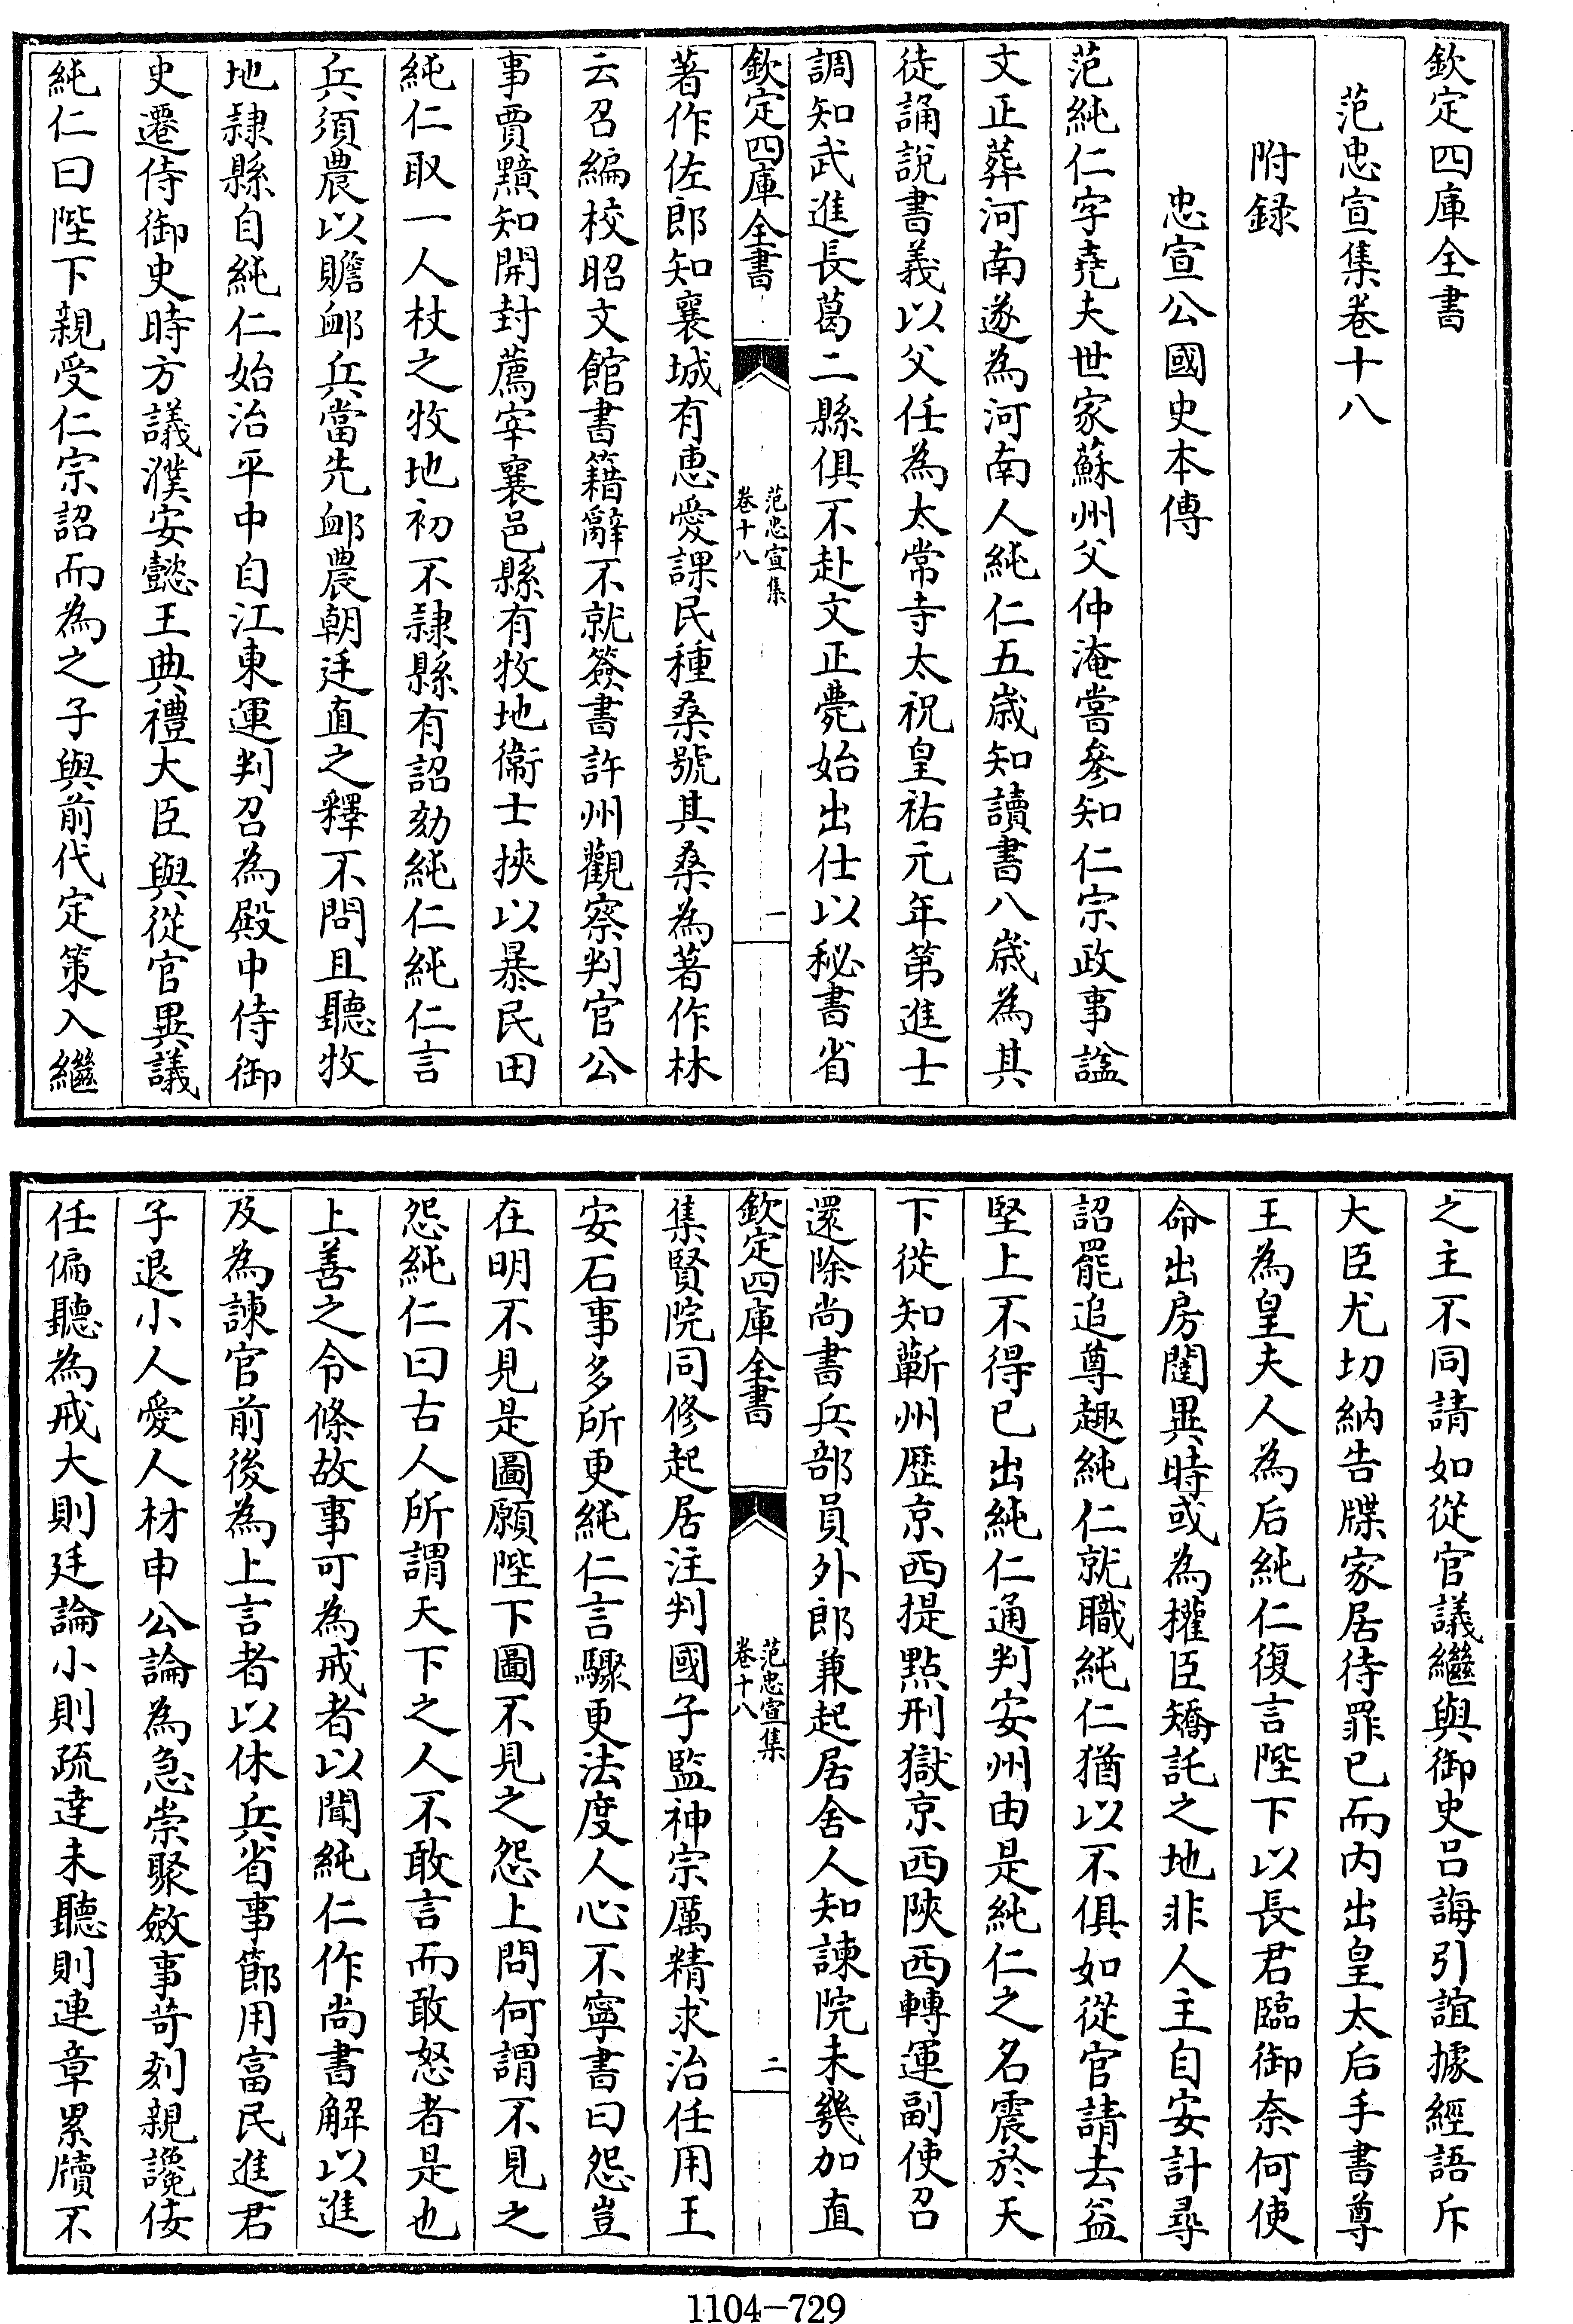 欽定四庫全書
范忠宣集卷十八
附録
忠宣公國史本傳
范純仁字堯夫世家蘇州父仲淹嘗參知仁宗政事諡
文正葬河南遂為河南人純仁五歲知讀書八歲為其
徒誦說書義以父任為太常寺太祝皇祐元年第進士
調知武進長葛二縣俱不赴文正薨始出仕以秘書省
欽定四庫全書
范忠宣集
卷十八
一
著作佐郎知襄城有惠愛課民種桑號其桑為著作林
云召編校昭文館書籍辭不就簽書許州觀察判官公
事賈黯知開封薦宰襄邑縣有牧地衛士挾以暴民田
純仁取一人杖之牧地初不隷縣有詔劾純仁純仁言
兵須農以贍䘏兵當先䘏農朝廷直之釋不問且聽牧
地隷縣自純仁始治平中自江東運判召為殿中侍御
史遷侍御史時方議濮安懿王典禮大臣與從官異議
純仁曰陛下親受仁宗詔而為之子與前代定策入繼
之主不同請如從官議繼與御史吕誨引誼據經語斥
大臣尤切納告牒家居待罪已而内出皇太后手書尊
王為皇夫人為后純仁復言陛下以長君臨御奈何使
命出房闥異時或為權臣矯託之地非人主自安計尋
詔罷追尊趣純仁就職純仁猶以不俱如從官請去益
堅上不得已出純仁通判安州由是純仁之名震於天
下徙知蘄州歴京西提點刑獄京西陜西轉運副使召
還除尚書兵部員外郎兼起居舍人知諫院未幾加直
欽定四庫全書
范忠宣集
卷十八
二
集賢院同修起居注判國子監神宗厲精求治任用王
安石事多所更純仁言驟更法度人心不寧書曰怨豈
在明不見是圖願陛下圖不見之怨上問何謂不見之
怨純仁曰古人所謂天下之人不敢言而敢怒者是也
上善之令條故事可為戒者以聞純仁作尚書解以進
及為諫官前後為上言者以休兵省事節用富民進君
子退小人愛人材申公論為急崇聚斂事苛刻親讒佞
任偏聽為戒大則廷論小則疏達未聽則連章累牘不
1104-729